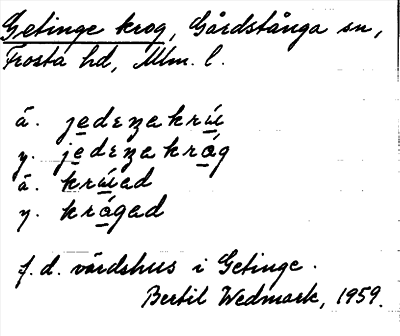 Getinge krog, Gårdstånga sn,
Frosta hd, Mlm. l.
ä. jedeŋakrú
y. jedeŋakróg
ä. krúad
y. krógad
f. d. värdshus i Getinge.
Bertil Wedmark, 1959.